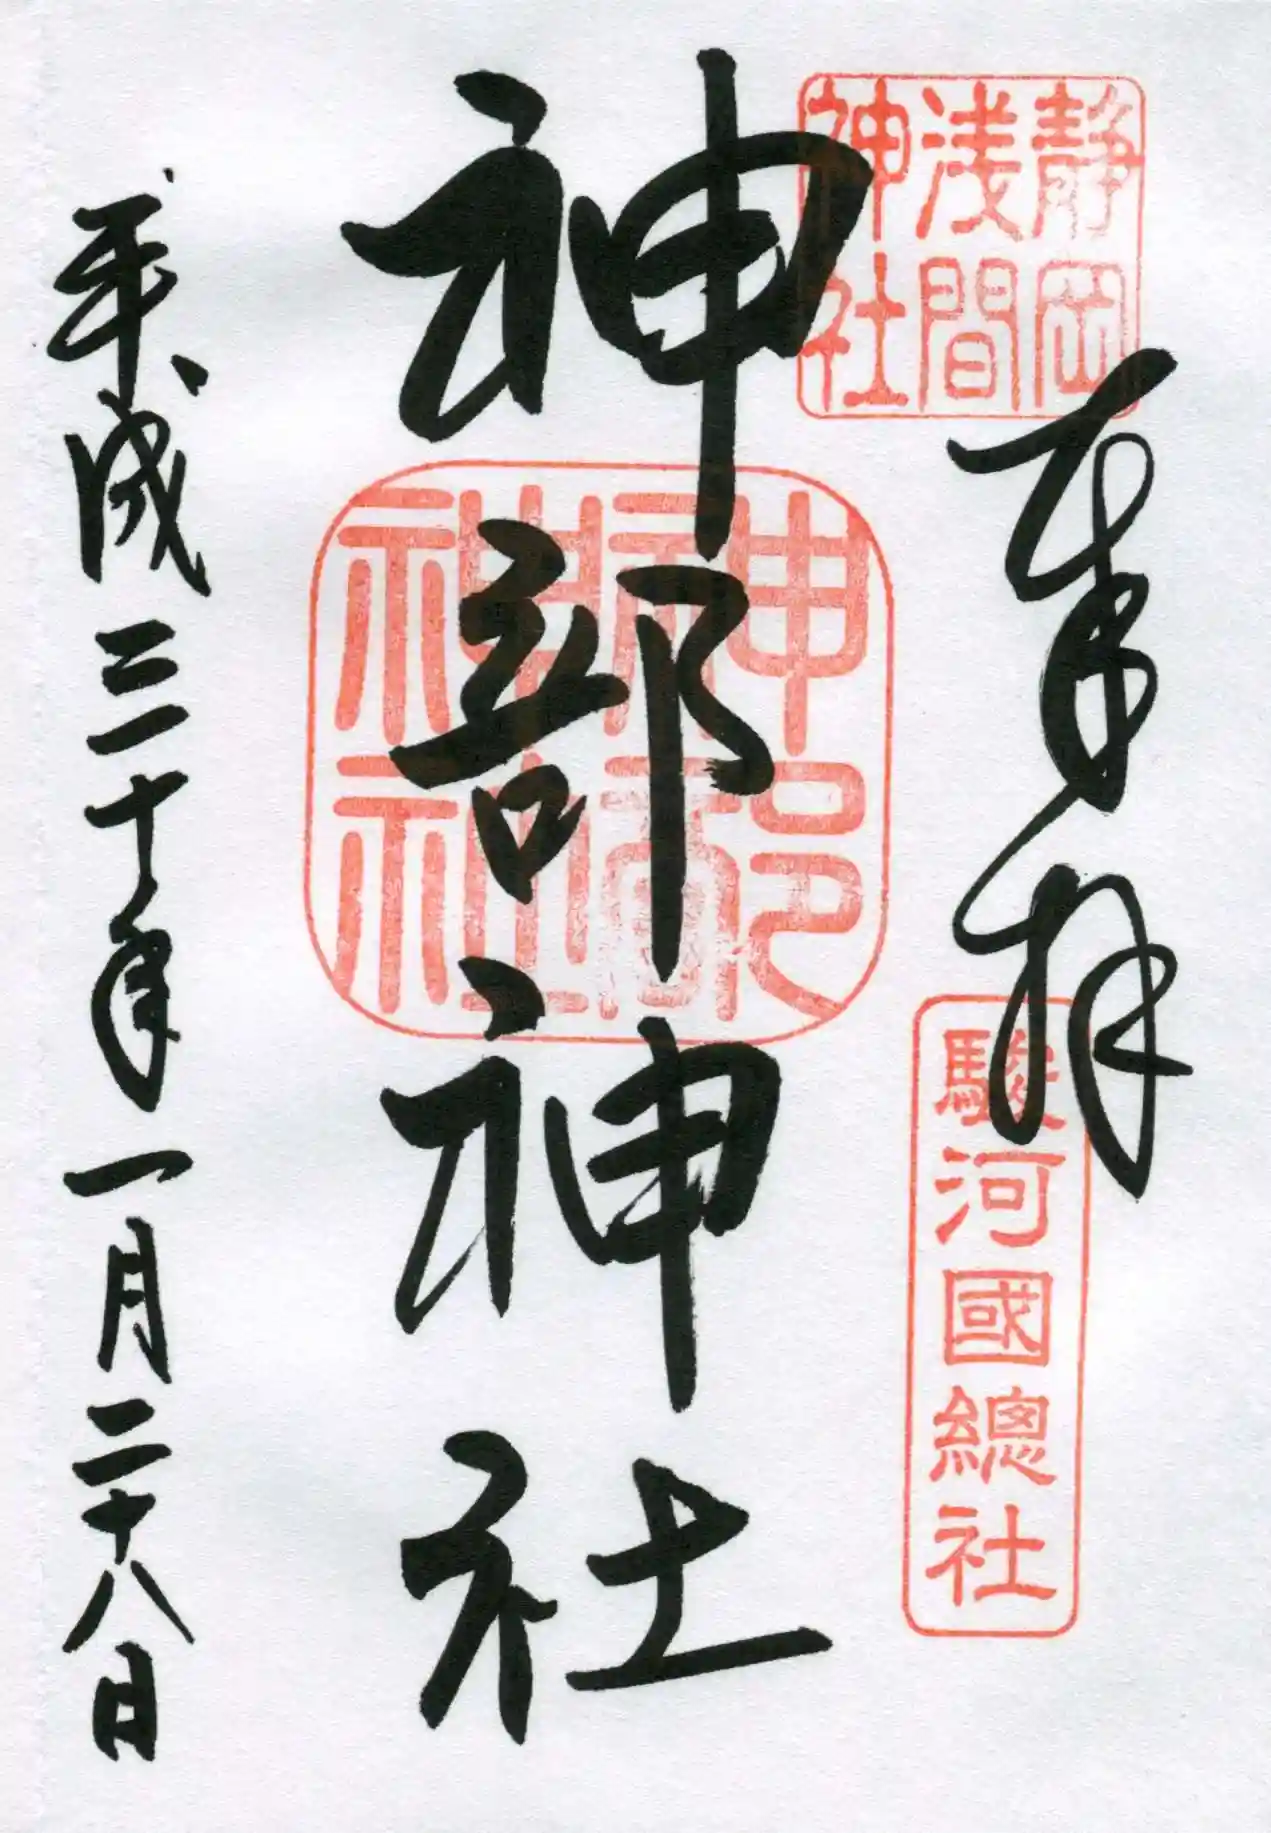 静岡
浅間
神社
奉拝
駿河國總社
神部神社
神部
神社
平成三十年一月二十八日